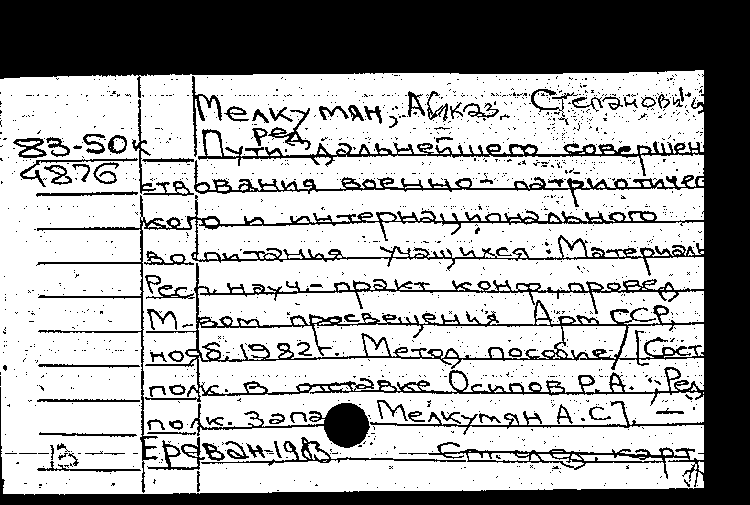 Мелкумян, Айказ Степанович
ред.
83-50к
4876
Пути дальнейшего совершен
ствования военно-патриотичес
кого и интернационального
воспитания учащихся: Материалы
Респ. науч.-практ. конф., провед.
М-вом просвещения Арм ССР,
нояб. 1982 г. Метод. пособие / [Сост.
полк. в отставке Осипов Р.А.; Ред.
полк. запа Мелкумян А.С.]. —
Ереван, 1983.
См. след. карт.
13